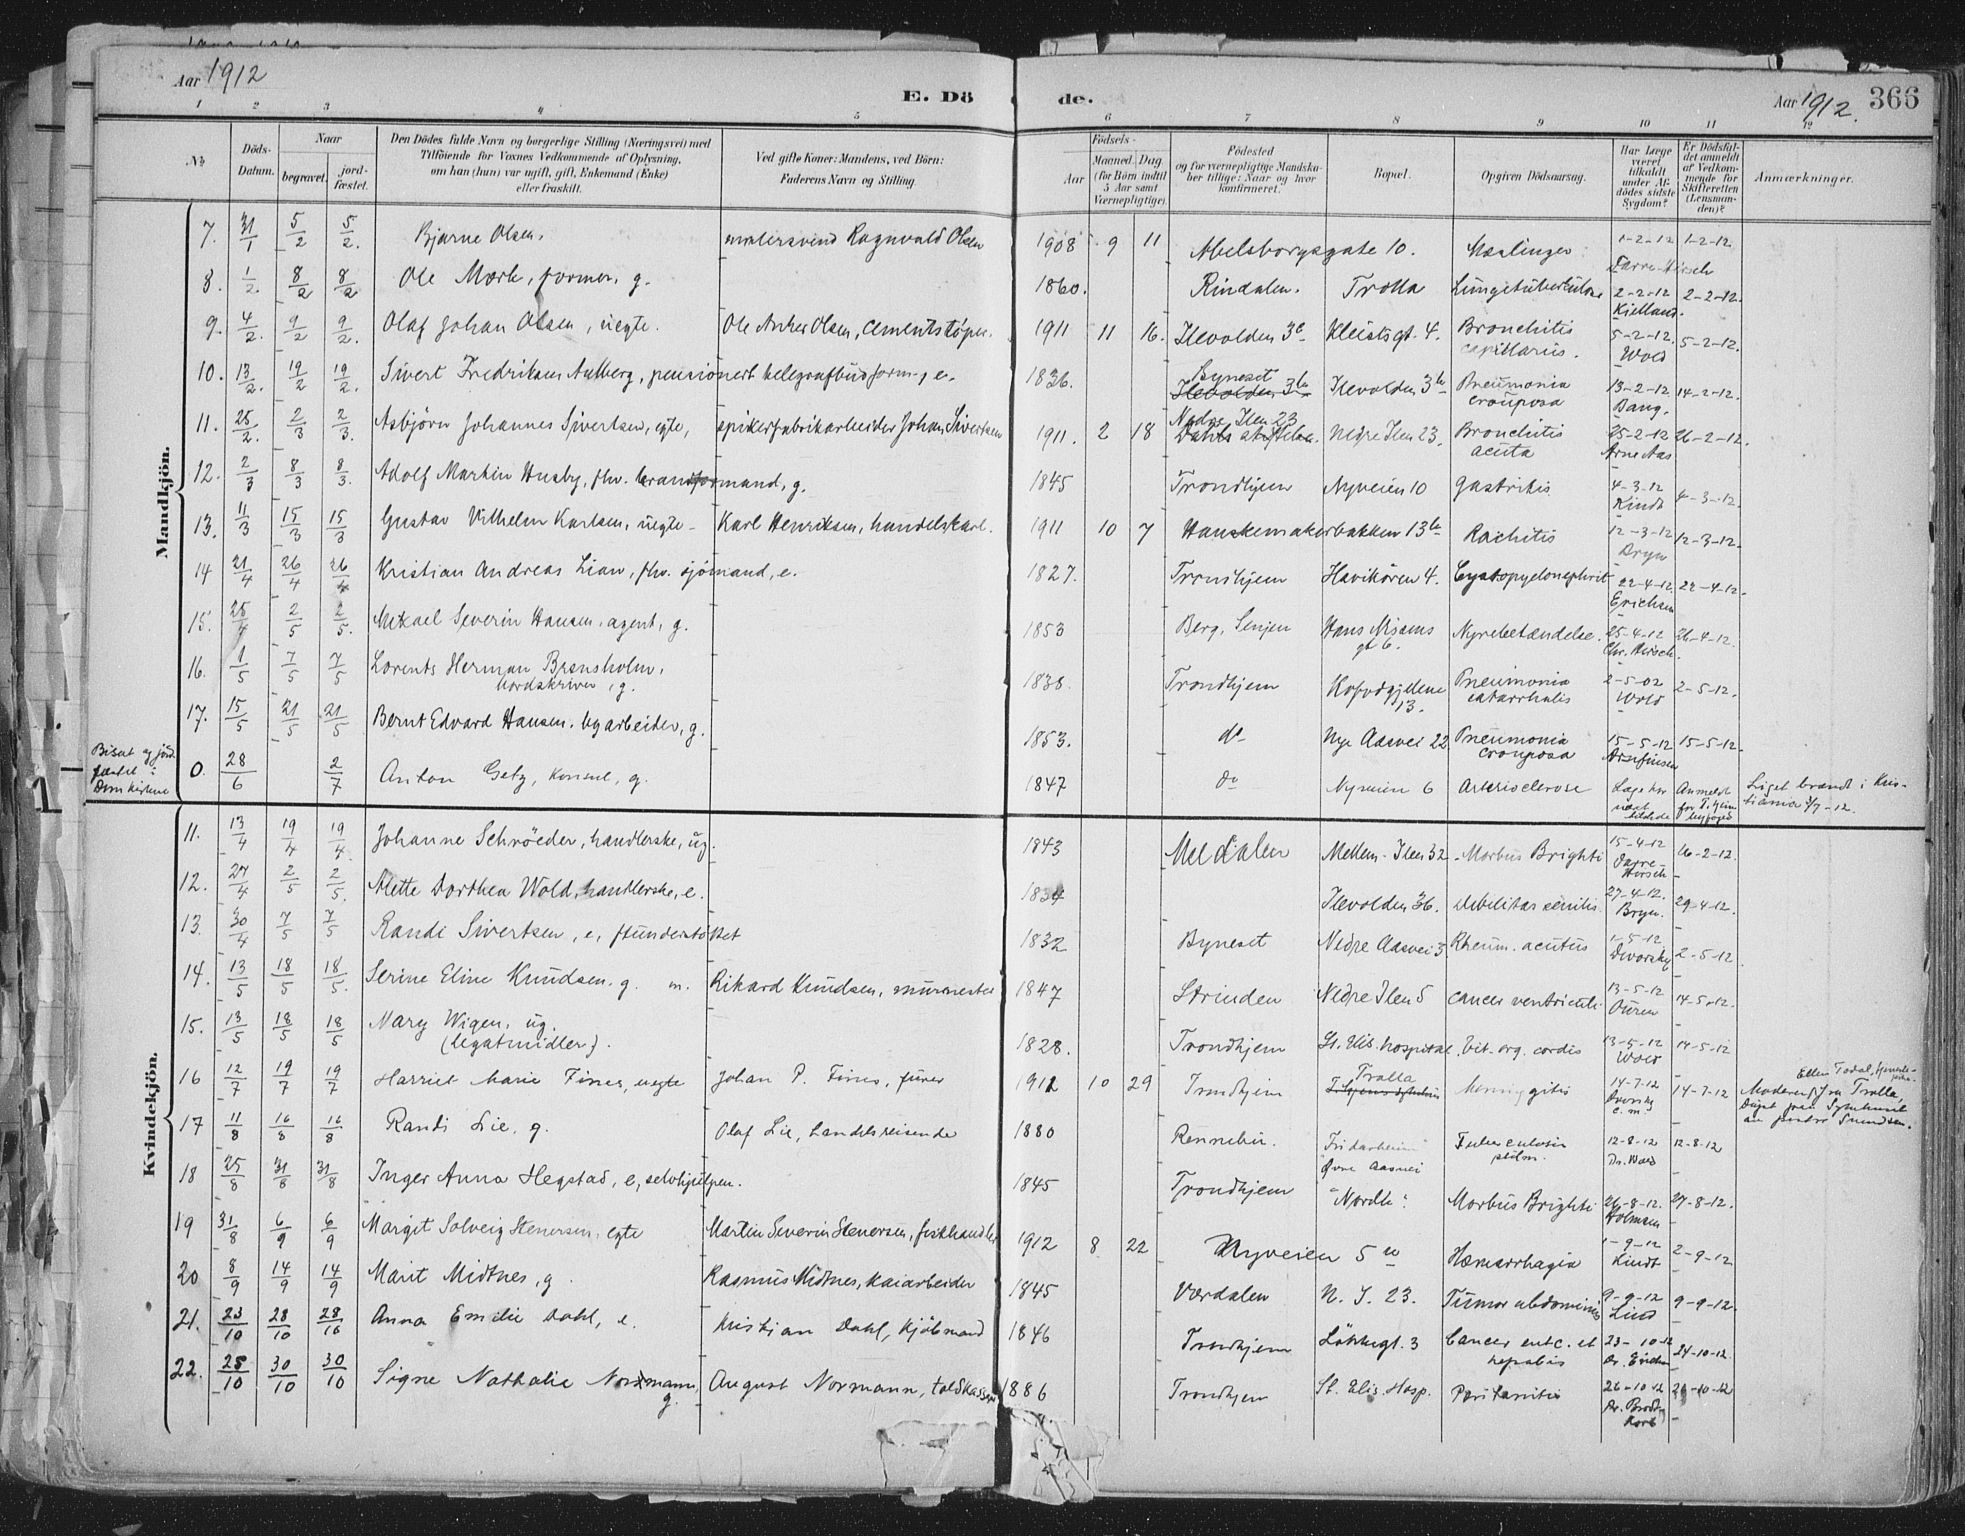 Aar 1912
E. Dö de.
Aar 1912.
366
1 2 3 4 5 6 7 8 9 10 11 12
No
Döds-Datum.
Naar
begravet.
jord-fæstet.
Den Dödes fulde Navn og borgerlige Stilling (Næringsvei) med
Tilföiende for Voxnes Vedkommende af Oplysning,
om han (hun) var ugift, gift, Enkemand (Enke)
eller fraskilt.
Ved gifte Koner: Mandens, ved Börn:
Faderens Navn og Stilling.
Födsels-
Aar
Maaned. Dag.
(for Börn indtil
5 Aar samt
Værnepligtige)
Födested
og for værnepligtige Mandska-
ber tillige: Naar og hvor
konfirmeret.
Bopæl.
Opgiven Dödsaarsag.
Har Læge
været
tilkaldt
under Af-
dödes sidste
Sygdom?
Er Dödsfal-
det anmeldt
af Vedkom-
mende for
Skifteretten
(Lensman-
den)?
Anmærkninger.
Mandkjön.
7. 31/1 5/2 5/2. Bjarne Olsen. malersvend Ragnvald Olsen 1908 9 11 Abelsborgsgate 10. Mæslinger 1-2-12 Darre-Hirsch 1-2-12
8. 1/2 8/2 8/2 Ole Mørk, former, g. 1860. Rindalen. Trolla Lungetuberkulose 2-2-12 Kielland. 2-2-12.
9. 4/2. 9/2 9/2. Olaf Johan Olsen, uegte. Ole Anker Olsen, cementstøper. 1911 11 16. Ilevolden 3c Kleistsgt. 4. Bronchitis capillarius. 5-2-12. Wold 5-2-12.
10. 13/2. 19/2 19/2. Sivert Fredriksen Aalberg, pensionert telegrafbudform., e. 1836. Byneset Ilevolden 3b Ilevolden 3b Pneumonia crouposa 13-2-12 Bang. 14-2-12.
11. 25/2. 2/3 2/3. Asbjörn Johannes Sivertsen, egte, spikerfabrikarbeider Johan Sivertsen 1911. 2 18 Nedre Ilen 23 Dahls stiftelse. Nedre Ilen 23. Bronchitis acuta 25-2-12 Arne Aas 26-2-12.
12. 2/3 8/3 8/3. Adolf Martin Husby, fhv. brandformand, g. 1845 Trondhjem Nyveien 10 Gastritis 4-3-12 Kindt 4-3-12.
13. 11/3 15/3 15/3 Gustav Vilhelm Karlsen, uegte- Karl Henriksen, handelskarl. 1911 10 7 Hanskemakerbakken 13b Rachitis 12-3-12 Bryn 12-3-12.
14 21/4 26/4 26/4 Kristian Andreas Lian, fhv. sjömand, e. 1827. Trondhjem Havikören 4. Cystopyelonephrit 22-4-12. Erichsen 22-4-12.
15. 25/4 2/5 2/5. Mikael Severin Hansen, agent, g. 1853 Berg, Senjen Hans Nissens gt 6. Nyrebetændelse. 25-4-12 Chr. Hirsch. 26-4-12.
16. 1/5 7/5 7/5 Lorents Herman Brønsholm, bordskriver, g. 1838. Trondhjem 13. Pneumonia catarrhalis 2-5-02 Wold 2-5-12.
17. 15/5 21/5 21/5 Bernt Edvard Hansen, byarbeider, g. 1853. do Nye Aasvei 22 Pneumonia crouposa 15-5-12 15-5-12.
Biset og jord-
fæstet i
Domkirken
0. 28/6 2/7 Anton Getz, konsul, g. 1847 do Nyveien 6 Arteriosclerose Læge har vært tilstede Anmeldt for T.hjem byfoged Liget brændt i Kris-
tiania 3/7-12.
Kvindekjön.
11. 13/4 19/4 19/4. Johanne Schröeder, handlerske, ug. 1843 Meldalen Mellem-Ilen 32 Morbus Brighti 15-4-12 Darre-Hirsch 16-2-12.
12. 27/4 2/5 2/5. Alette Dorthea Wold, handlerske, e. 1834 Ilevolden 36. Debilitas senilis. 27-4-12. Bryn. 29-4-12.
13. 30/4 7/5 7/5 Randi Sivertsen, e, ftunderstöttet 1832 Byneset Nedre Aasvei 5 Rheum. acutus 1-5-12 Dworsky 2-5-12.
14. 13/5 18/5 18/5. Serine Eline Knudsen. g. m. Rikard Knudsen, murmester 1847 Strinden Nedre Ilen 5 Cancer ventriculi 13-5-12 Ouren 14-5-12.
15. 13/5 18/5 18/5 Mary Wigen, ug. (legatmidler). 1828. Trondhjem St. Elis. hospital. Vit. org. cordis 13-5-12 Wold 14-5-12
16 12/7 19/7 19/7 Harriet Marie Fines, uegte Johan P. Fines, furer 1912 10 29 Trondhjem Trolla T.hjems sykehus Meningitis 14-7-12 Dvorsky c.m. 14-7-12 Ellen Todal,
Moderen fra Trolla,
Døpt paa Sykehuset
av pastor Svendsen.
17 11/8 16/8 16/8 Randi Lie, g. Olaf Lie, handelsreisende 1880 Rennebu. Fridarheim Øvre Aasvei Tuberculosis pulm. 12-8-12 Dr. Wold 12-8-12
18 25/8 31/8 31/8 Inger Anna Hegstad, e, selvhjulpen. 1845 Trondhjem "Nordli". Morbus Brighti 26-8-12. Holmsen 27-8-12.
19 31/8 6/9 6/9 Margit Solveig Stenersen, egte Martin Severin Stenersen, fiskhandler 1912 8 22 Nyveien 5 Hæmorrhagia 1-9-12 Lindt 2-9-12
20 8/9 14/9 14/9 Marit Midtnes, g. Rasmus Midtnes, kaiarbeider 1845 Værdalen N. I. 23. Tumor abdominis 9-9-12 Lind 9-9-12.
21. 23/10 28/10 28/10 Anna Emilie Dahl, e. Kristian Dahl, kjöbmand 1846 Trondhjem Løkkegt. 3 Cancer ent. et hepatis 23-10-12 Dr. Erichsen 24-10-12.
22. 25/10 30/10 30/10 Signe Nathalie Normann, g. August Normann, toldkasserer 1886 Trondhjem St. Elis. Hosp. Peritonitis 26-10-12 26-10-12